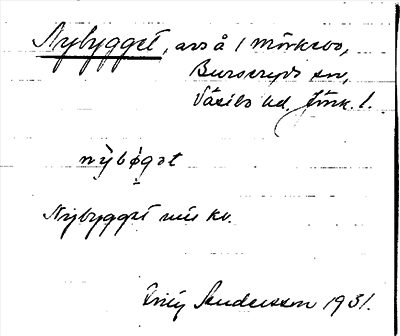 Nybygget, avs å 1 Mörkebo,
Burseryds sn,
Västbo hd. Jönk. l.
nybøgət
Nybygget
Andersson 1931.